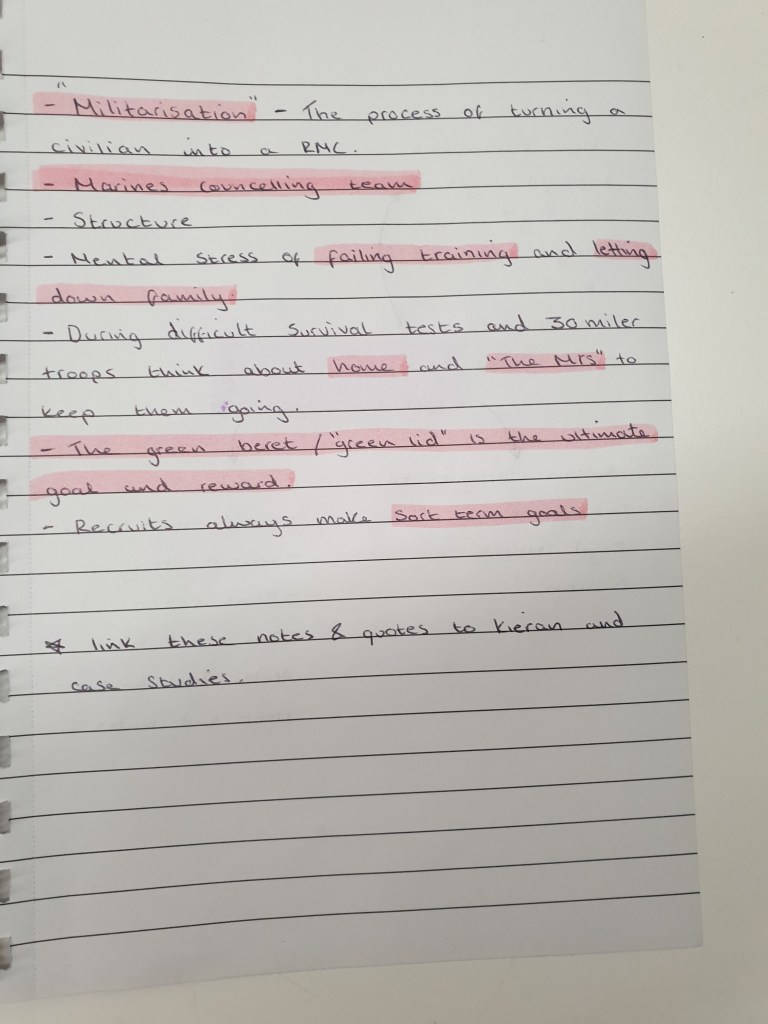 - "Militarisation" - The process of turning a
civilian into a RMC.
- Marines Councelling team
- Structure
- Mental stress of failing training and letting
down family.
- During difficult survival tests and 30 miler
troops think about home and "The Mrs" to
keep them going.
- The green beret / "green lid" is the ultimate
goal and reward.
- Recruits always make Sort term goals
* link these notes & quotes to Kieran and
case studies.